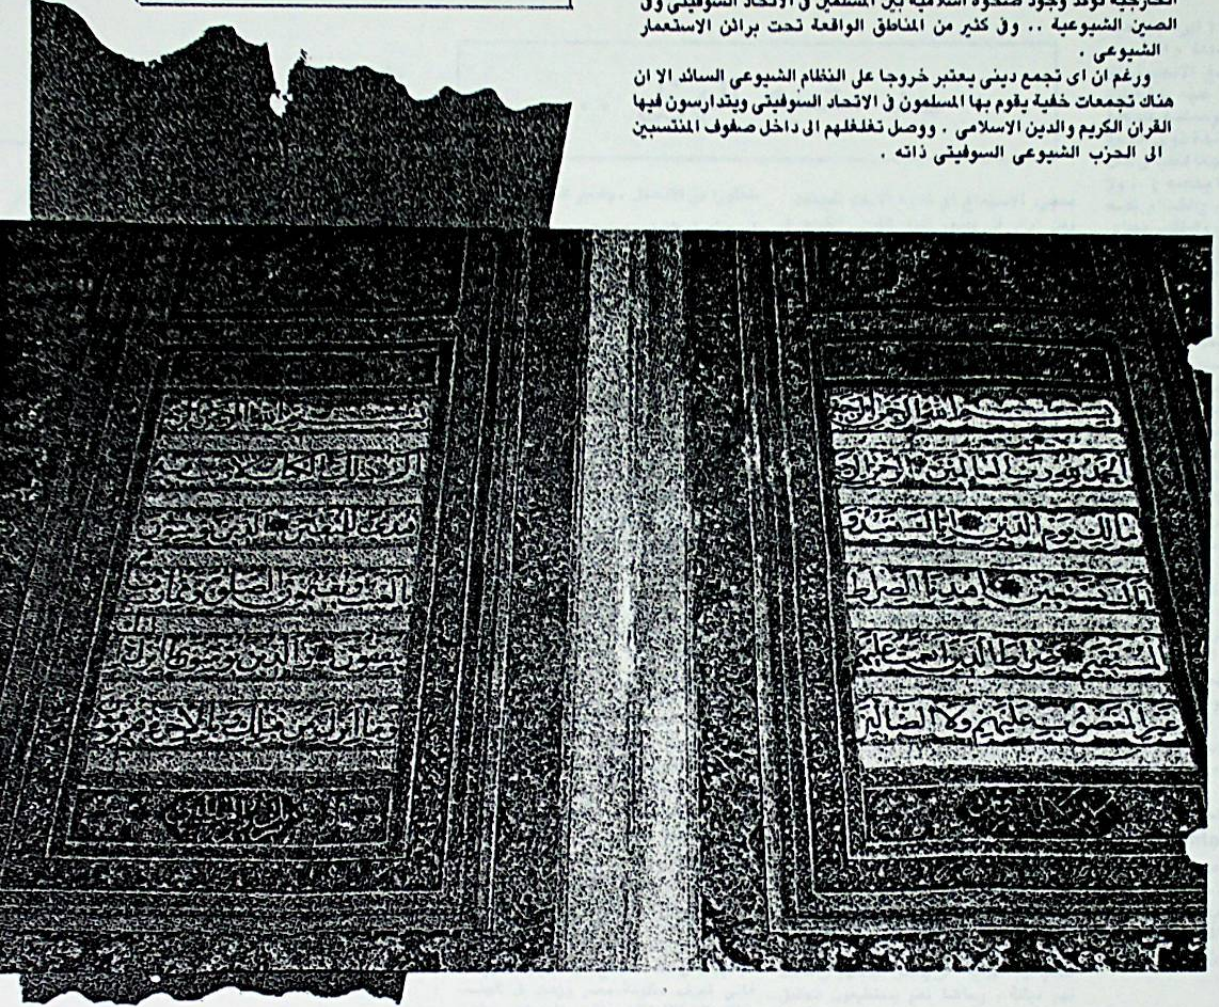 الخارجية تؤكد وجود صحوة اسلامية بين المسلمين فى الاتحاد السوفيتى وفى
الصين الشيوعية .. وفى كثير من المناطق الواقعة تحت براثن الاستعمار
الشيوعى .
ورغم ان اى تجمع دينى يعتبر خروجا على النظام الشيوعى السائد الا ان
هناك تجمعات خفية يقوم بها المسلمون فى الاتحاد السوفيتى ويتدارسون فيها
القران الكريم والدين الاسلامى . ووصل تغلغلهم الى داخل صفوف المنتسبين
الى الحزب الشيوعى السوفيتى ذاته .
بسم الله الرحمن الرحيم
الحمد لله رب العالمين الرحمن
مالك يوم الدين اياك نعبد و
اياك نستعين اهدنا الصراط
المستقيم صراط الذين انعمت عليهم
غير المغضوب عليهم ولا الضالين
بسم الله الرحمن
الم ذلك الكتاب لا ريب فيه
هدى للمتقين الذين يؤمنون
ويقيمون الصلوة ومما
ينفقون والذين يؤمنون بما انزل اليك
وما انزل من قبلك وبالاخرة هم